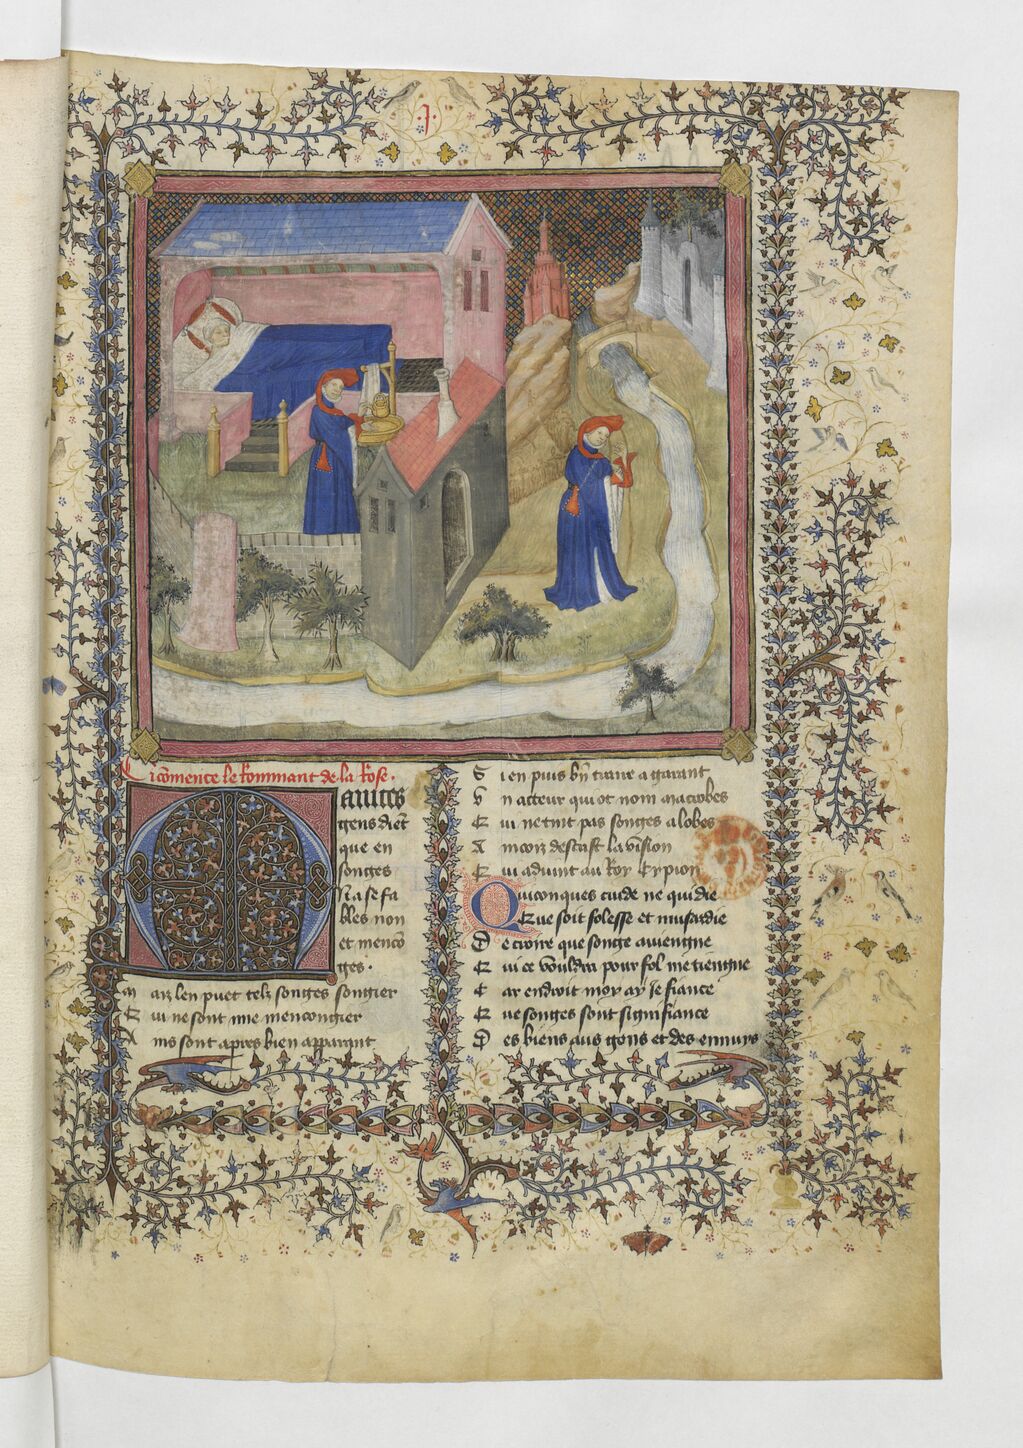 .j.
Ci cōmence le Rommant de la Rose.
Maintes
gens diēt
que en
songes
Na se fa
bles non
et mencō
ges.
Mais len puet telz songes songier
Qui ne sont mie mencongier
Ains sont apres bien apparant
Si en puis bn̄ traire a garant
Vn acteur qui ot nom macrobes
Qui ne tint pas songes a lobes
Aincoiz descrist la vision
Qui aduint au Roy Cypion
Quiconques cuide ne qui die
Que soit folesse et musardie
De croire que songe auiengne
Qui ce vouldra pour fol me tiengne
Car endroit moy ay je fiance
Que songes sont signifiance
Des biens aus gens et des ennuys